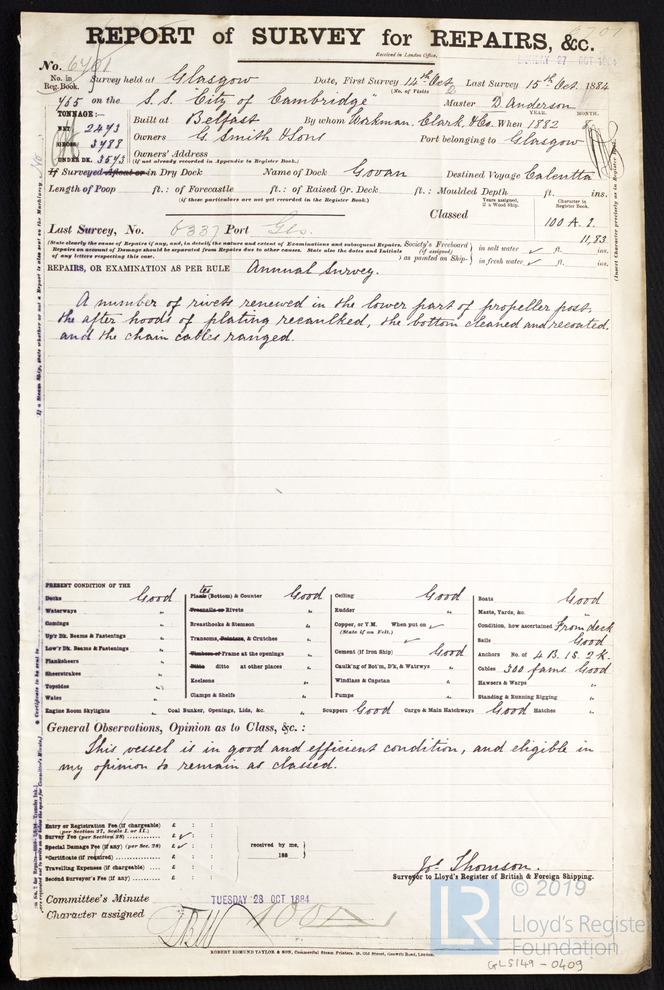 REPORT of SURVEY for REPAIRS, &c.
Received in London Office,
No. 6401
No. in Reg. Book.
Survey held at Glasgow Date, First Survey 14th Oct. Last Survey 15th Oct. 1884
(No. of Visits
465 on the S.S. "City of Cambridge" Master D. Anderson
TONNAGE:—
NET 2473
GROSS 3788
UNDER DK. 3573
YEAR. MONTH.
Built at Belfast By whom Workman, Clark, & Co. When 1882
Owners G. Smith & Sons Port belonging to Glasgow
Owners' Address
(if not already recorded in Appendix to Register Book.)
If Surveyed Afloat or in Dry Dock Name of Dock Govan Destined Voyage Calcutta
Length of Poop ft.: of Forecastle ft.: of Raised Qr. Deck ft.: Moulded Depth ft. ins.
(if these particulars are not yet recorded in the Register Book.)
Years assigned, if a Wood Ship. Character in Register Book.
Classed 100 A. 1.
11,83
Last Survey, No. 6337 Port Gls.
(State clearly the cause of Repairs if any, and, in detail, the nature and extent of Examinations and subsequent Repairs.
Repairs on account of Damage should be separated from Repairs due to other causes. State also the dates and Initials
of any letters respecting this case.
Society's Freeboard (if assigned) as painted on Ship- in salt water ✓ ft. ins.
in fresh water ✓ ft. ins.
REPAIRS, OR EXAMINATION AS PER RULE Annual Survey.
A number of rivets renewed in the lower part of propeller post,
the after hoods of plating recaulked, the bottom cleaned and recoated,
and the chain cables ranged.
PRESENT CONDITION OF THE
Decks Good
Waterways "
Comings "
Up'r Dk. Beams & Fastenings "
Low'r Dk. Beams & Fastenings "
Planksheers "
Sheerstrakes "
Topsides "
Wales "
Engine Room Skylights "
Plates (Bottom) & Counter Good
Treenails or Rivets "
Breasthooks & Stemson "
Transoms, Pointers, & Crutches "
Timbers or Frame at the openings "
Ditto ditto at other places "
Keelsons "
Clamps & Shelfs "
Coal Bunker, Openings, Lids, &c. "
Ceiling Good
Rudder "
Copper, or Y.M. When put on ✓
(State if on Felt.) ✓
Cement (if Iron Ship) Good
Caulk'ng of Bot'm, D'k, & Watrwys "
Windlass & Capstan "
Pumps "
Scuppers Good Cargo & Main Hatchways Good Hatches "
Boats Good
Masts, Yards, &c. "
Condition, how ascertained From deck
Sails Good
Anchors No. of 4 B. 1S. 2K.
Cables 300 fams. Good
Hawsers & Warps "
Standing & Running Rigging "
General Observations, Opinion as to Class, &c. :
This vessel is in good and efficient condition, and eligible in
my opinion to remain as classed.
Entry or Registration Fee (if chargeable) £ : :
(per Section 27, Scale I. or II.)
Survey Fee (per Section 28) £ ✓ : :
Special Damage Fee (if any) (per Sec. 28) £ ✓ : :
*Certificate (if required) £ : :
Travelling Expenses (if chargeable) £ : :
Second Surveyor's Fee (if any) £ : :
received by me,
188
Jos. Thomson.
Surveyor to Lloyd's Register of British & Foreign Shipping.
Committee's Minute TUESDAY 28 OCT 1884
Character assigned 100A1
ROBERT EDMUND TAYLOR & SON, Commercial Steam Printers, 19, Old Street, Goswell Road, London.
LR
© 2019
Lloyd's Register
Foundation
GLS149 - 0409